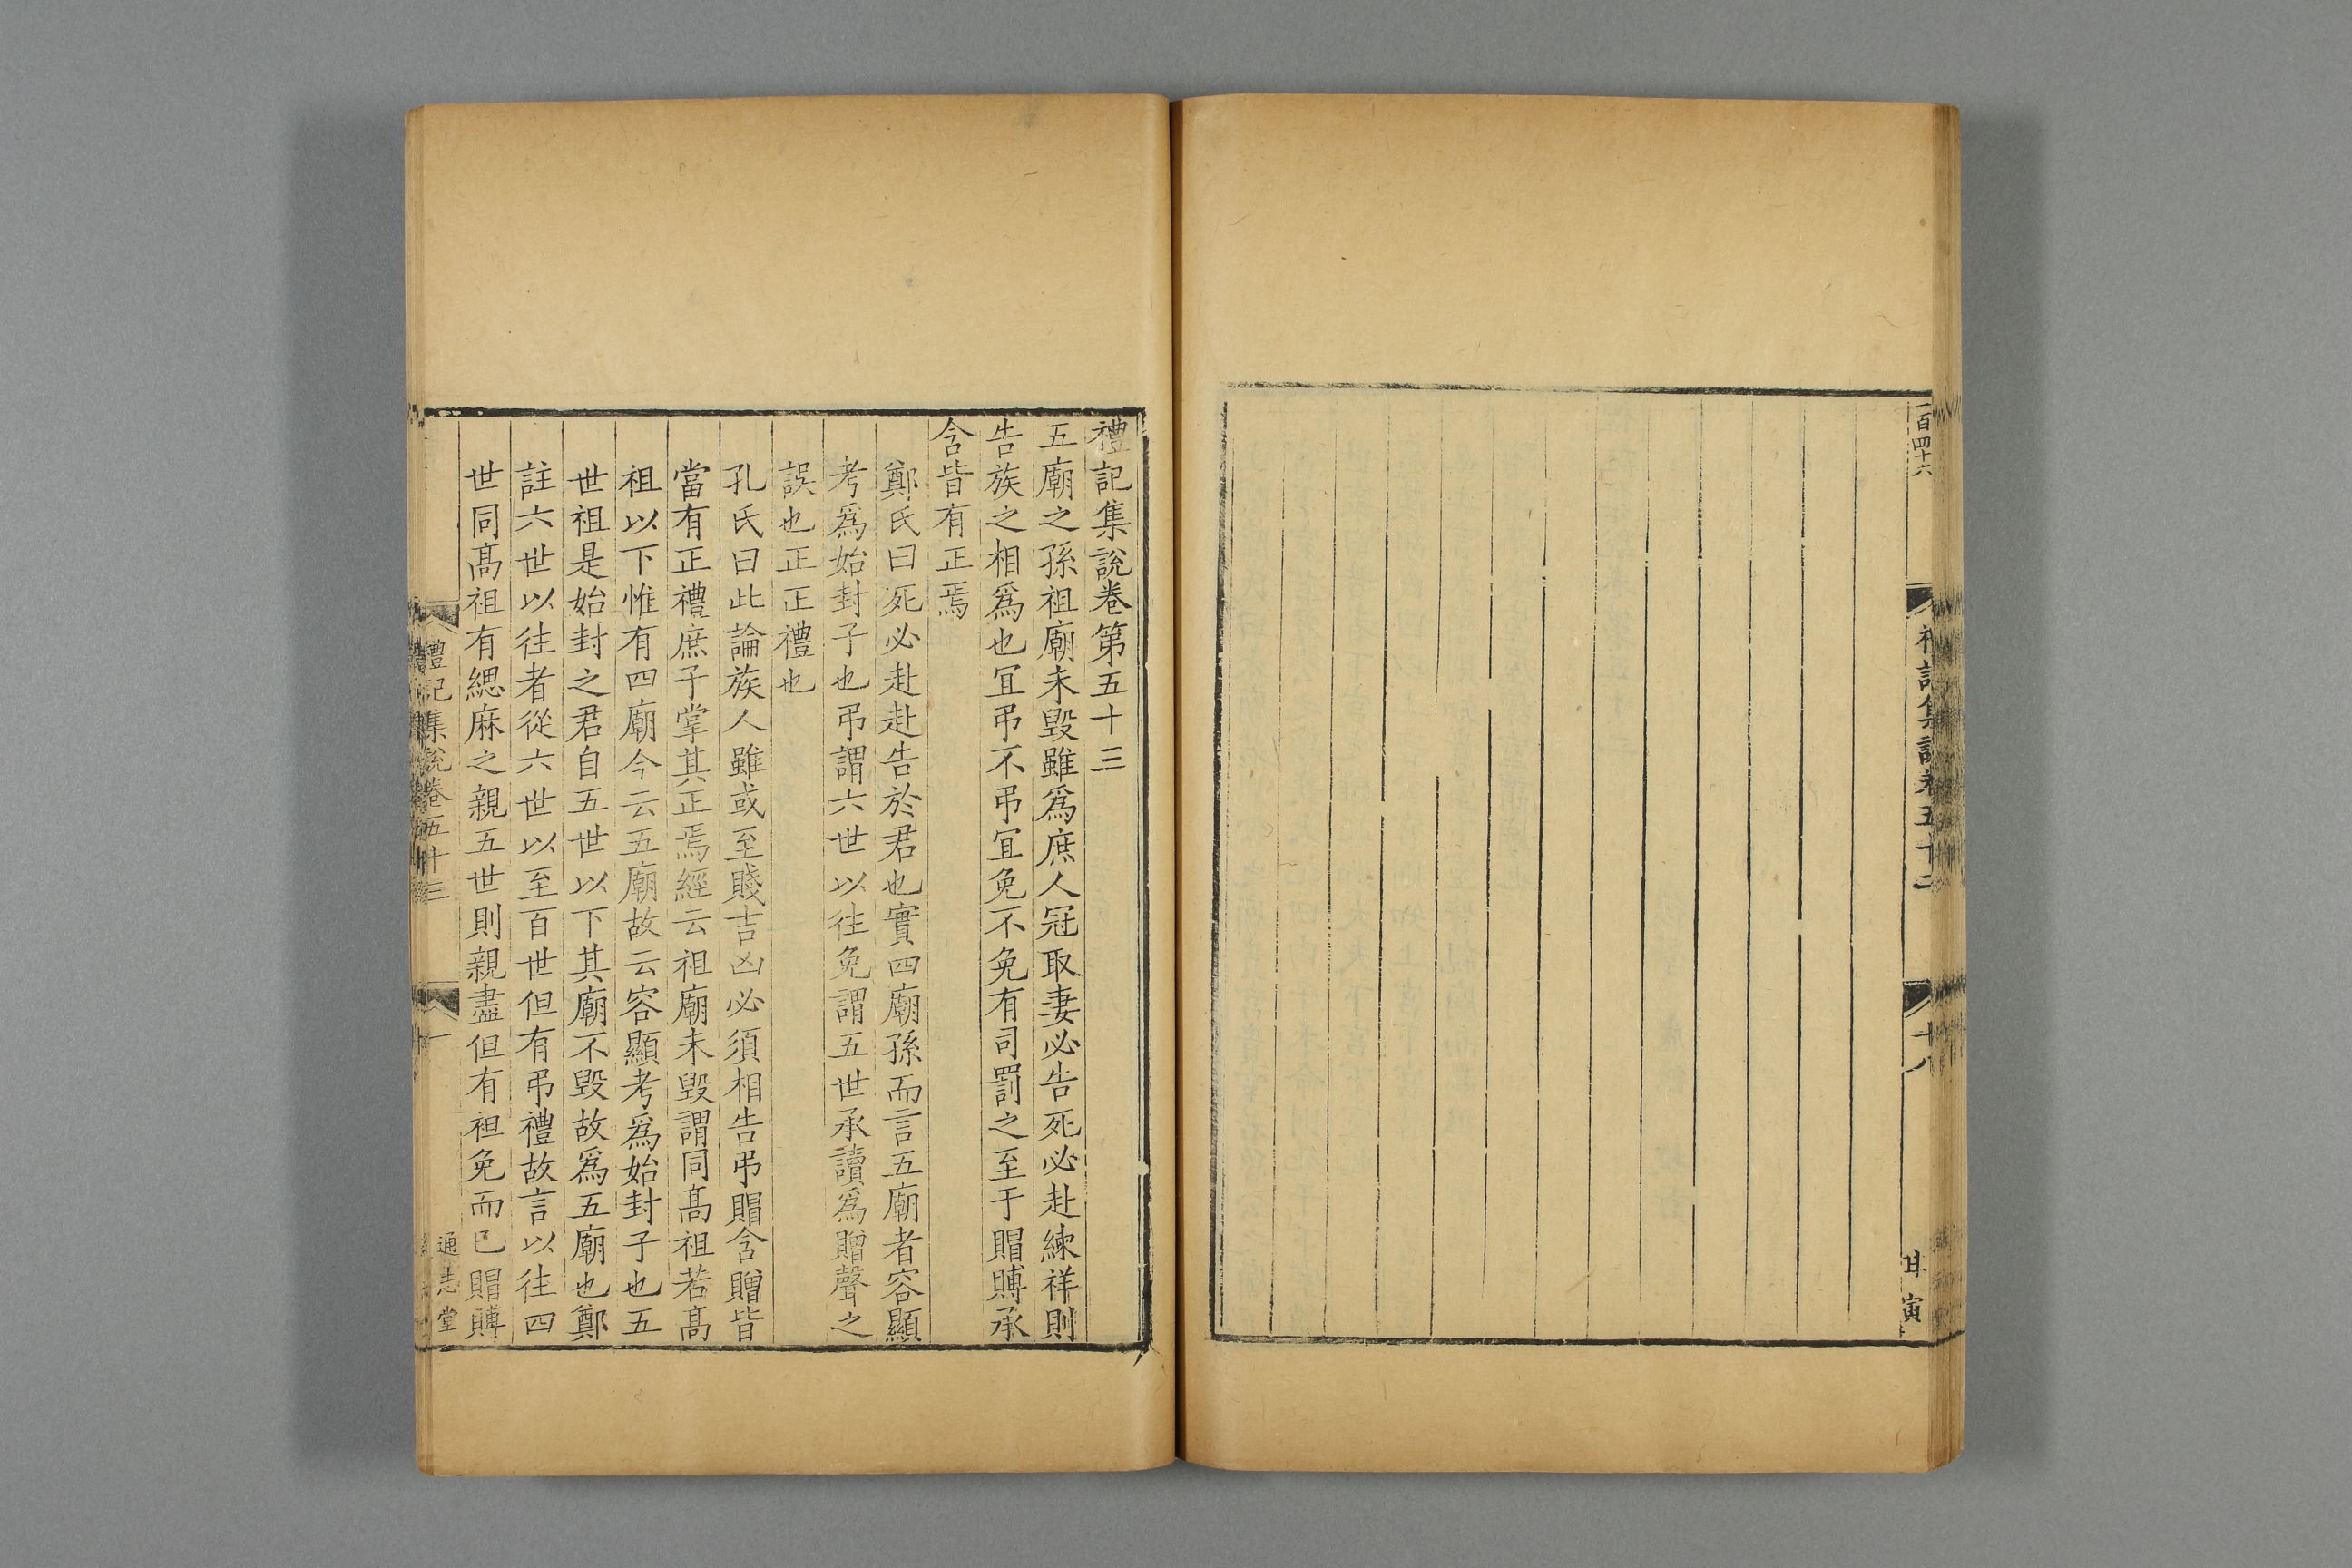 一百四十六
禮記集說卷五十二
十八
甘寅
禮記集說卷第五十三
五廟之孫祖廟未毀雖爲庶人冠取妻必告死必赴練祥則
告族之相爲也宜弔不弔宜免不免有司罰之至于賵賻承
含皆有正焉
鄭氏曰死必赴赴告於君也實四廟孫而言五廟者容顯
考爲始封子也弔謂六世以往免謂五世承讀爲贈聲之
誤也正正禮也
孔氏曰此論族人雖或至賤吉凶必須相告弔賵含贈皆
當有正禮庶子掌其正焉經云祖廟未毀謂同髙祖若髙
祖以下惟有四廟今云五廟故云容顯考爲始封子也五
世祖是始封之君自五世以下其廟不毀故爲五廟也鄭
註六世以往者從六世以至百世但有弔禮故言以往四
世同髙祖有緦麻之親五世則親盡但有袒免而已賵賻
禮記集說卷五十三
一
通志堂